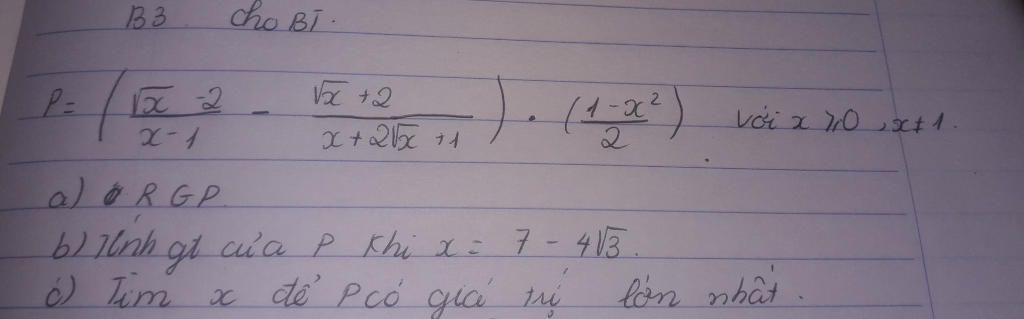 B3 Cho BT.
P = ( (√x - 2)/(x - 1) - (√x + 2)/(x + 2√x + 1) ) . ( (1 - x²)/2 ) với x ⩾ 0, x ≠ 1.
a) R G P
b) Tính gt của P khi x = 7 - 4√3.
c) Tìm x để P có giá trị lớn nhất.